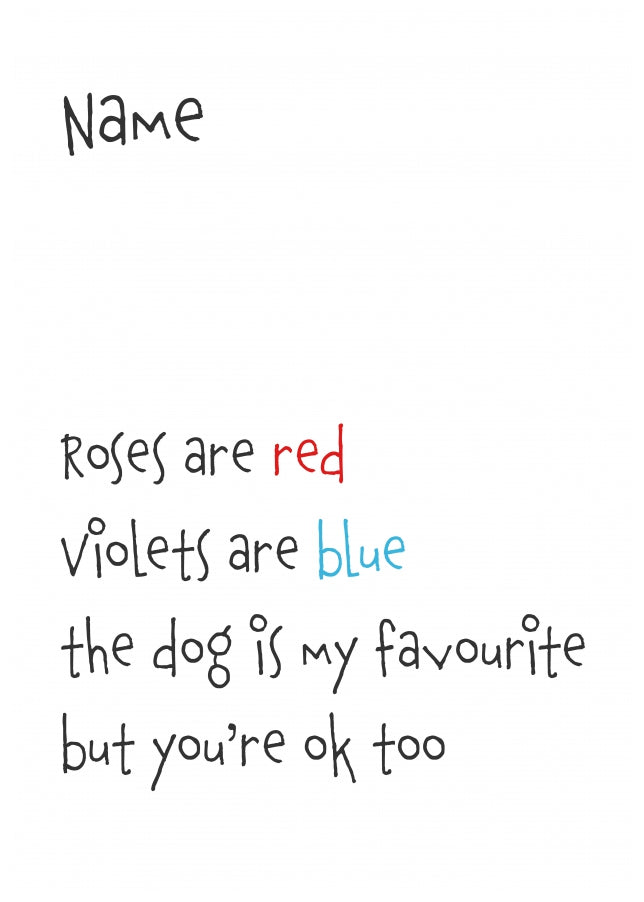 Name
Roses are red
violets are blue
the dog is my favourite
but you're ok too